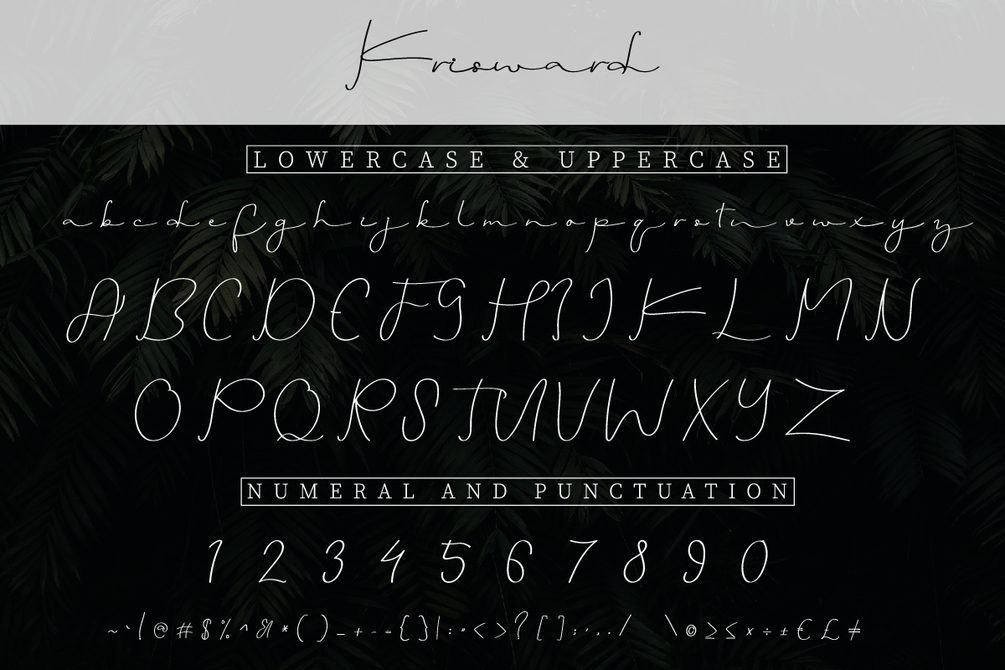 Krisward
LOWERCASE & UPPERCASE
a b c d e f g h i j k l m n o p q r s t u v w x y z
A B C D E F G H I J K L M N
O P Q R S T U V W X Y Z
NUMERAL AND PUNCTUATION
1 2 3 4 5 6 7 8 9 0
~ ` ! @ # $ % ^ & * ( ) _ + - = { } | : " < > ? [ ] ; ' , . / \ © ≥ ≤ × ÷ ± € £ ≠